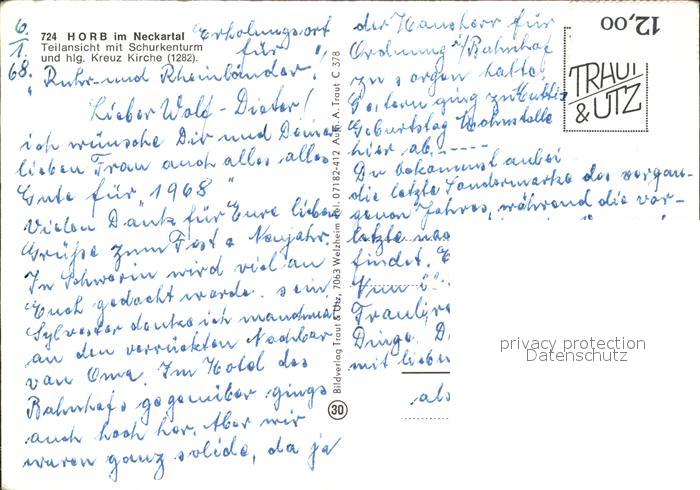 6.
1.
68.
724 HORB im Neckartal
Teilansicht mit Schurkenturm
und hlg. Kreuz Kirche (1282).
Erholungsort
für
"Ruhr- und Rheinländer"!
Lieber Wolf-Dieter!
ich wünsche Dir und Deiner
lieben Frau auch alles alles
Gute für "1968"
Vielen Dank für Eure lieben
Grüße zum Fest u Neujahr.
In Schwerin wird viel an
Euch gedacht
Sylvester dankte ich manchmal
an den verrückten Nachbar
van Oma. Im Hotel des
Bahnhofs gegenüber gings
auch hoch her. Aber wir
waren ganz solide, da ja
Bildverlag Traut & Utz, 7063 Welzheim Tel. 07182-412 Aufn. A. Traut C 378
30
der Hausherr für
Ordnung i/Bahnhof
zu sorgen hatte.
Gestern ging zu Muttis
Geburtstag
hier ab.-----
Du bekommst anbei
die letzte Sondermarke des vergan-
genen Jahres, während die vor-
letzte
findet.
Nun
Dinge. D
mit lieben
als
12,00
TRAUT
& UTZ
privacy protection
Datenschutz